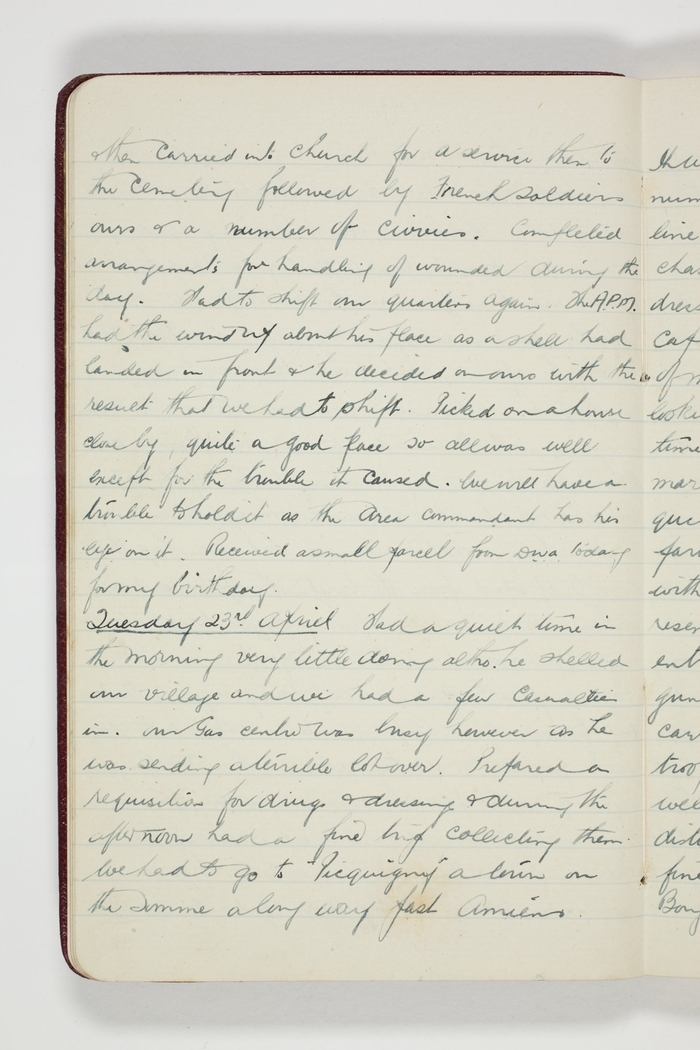 & then carried into Church for a service then to
the Cemetery followed by French soldiers
ours & a number of civvies. Completed
arrangements for handling of wounded during the
day. Had to shift our quarters again. The A.P.M.
had the wind up about his place as a shell had
landed in front & he decided on ours with the
result that we had to shift. Picked on a house
close by, quite a good place so all was well
except for the trouble it caused. We will have a
trouble to hold it as the Area commandant has his
eye on it. Received a small parcel from today
for my birthday.
Tuesday 23rd April Had a quiet time in
the morning very little doing altho. he shelled
our village and we had a few Casualties
in. our Gas centre was busy however as he
was sending a terrible lot over. Prepared a
requisition for drugs & dressing & during the
afternoon had a fine trip collecting them.
We had to go to "Picquigny" a town on
the Somme a long way past Amiens.
num
line
chas
dress
of
time
mar
with
reser
ent
gun
car
troo
well
dist
fine